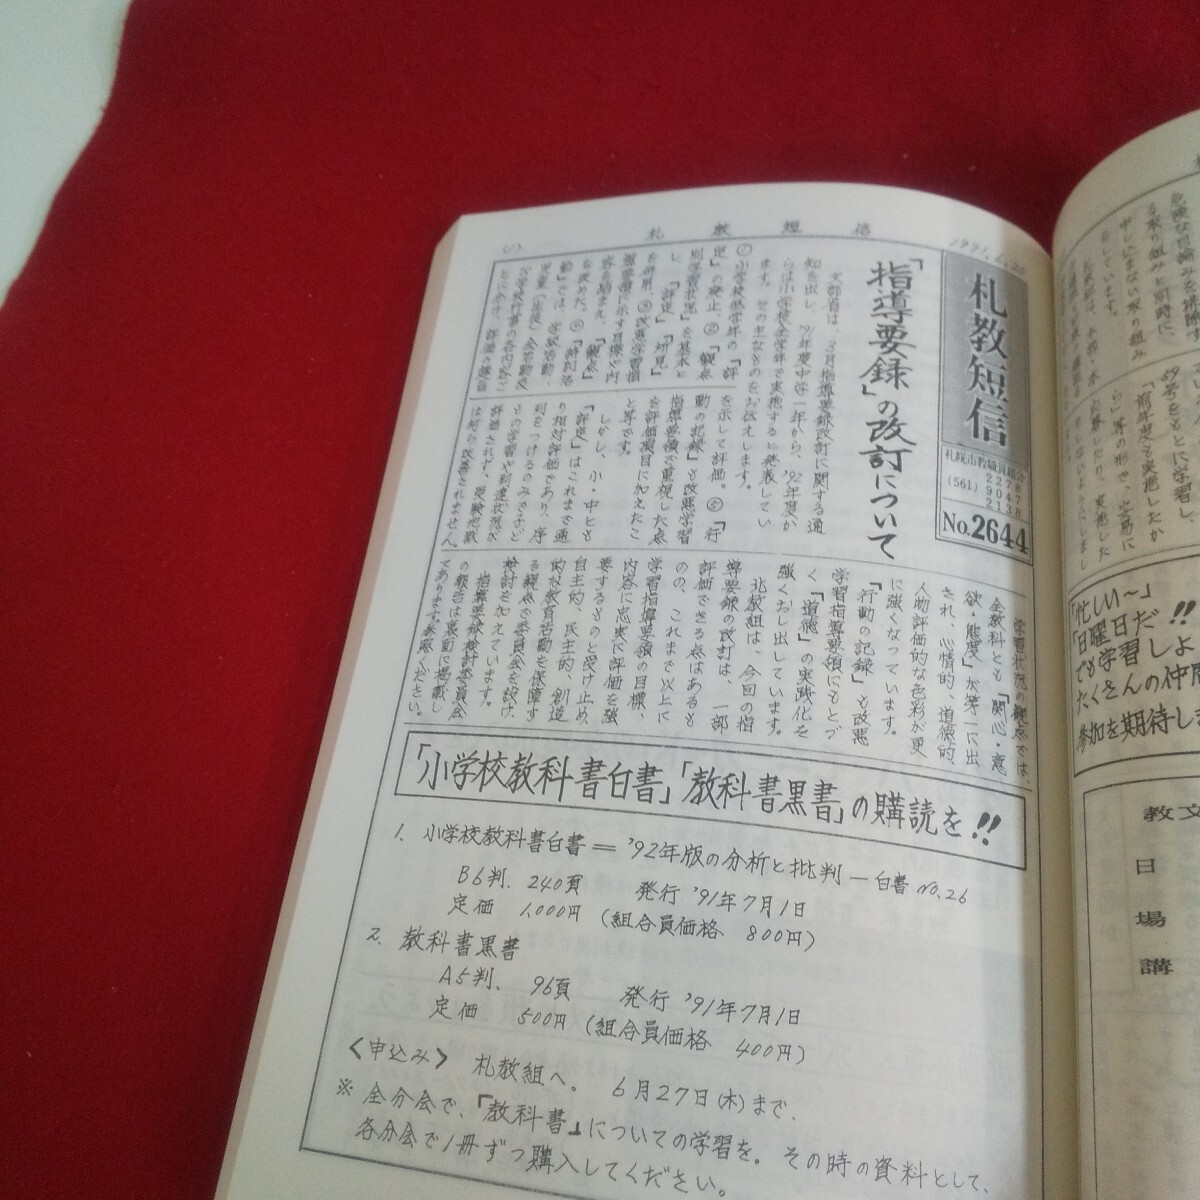 札教短信
1991.6.20
札教短信
札幌市教職員組合
2278
(561) 9047
2138
No.2644
「指導要録」の改訂について
文部省は、3月指導要録改訂に関する通
知を出し、'91年度中学一年から、'92年度か
らは小学校全学年で実施すると発表してい
ます。その主なものをお伝えします。
①小学校低学年の「評
定」の廃止。②「観点
別学習状況」を基本と
し、「評定」「所見」
を併用。③改悪学習指
導要領に示す目標や内
容を踏まえ、「観点」
を改めた。④「特別活
動」では、学級活動、
児童(生徒)会活動及
び学校行事の各内容ご
とに分け、評価の趣旨
を示して評価。⑤「行
動の記録」も改悪学習
指導要領で重視した点
を評価項目に加えたこ
と等です。
しかし、小・中とも
「評定」はこれまで通
り相対評価であり、序
列をつけるのみで子ど
もの学習や到達状況が
評価されず、受験地獄
は何ら改善されません。
学習状況の観点では、
全教科とも「関心・意
欲・態度」が第一に出
され、心情的、道徳的、
人物評価的な色彩が更
に強くなっています。
「行動の記録」も改悪
学習指導要領にもとづ
く「道徳」の実践化を
強くおし出しています。
北教組は、今回の指
導要録の改訂は、一部
評価できる点はあるも
のの、これまで以上に
学習指導要領の目標、
内容に忠実に評価を強
要するものと受け止め、
自主的、民主的、創造
的な教育活動を保障す
る観点で委員会を設け
検討を加えています。
指導要録検討委員会
の報告は裏面に掲載し
てあります。参照ください。
「小学校教科書白書」「教科書黒書」の購読を!!
1. 小学校教科書白書＝'92年版の分析と批判―白書 No.26
B6判、240頁 発行 '91年7月1日
定価 1,000円 (組合員価格 800円)
2. 教科書黒書
A5判、96頁 発行 '91年7月1日
定価 500円 (組合員価格 400円)
<申込み> 札教組へ。 6月27日(木)まで、
※ 全分会で、「教科書」についての学習を。その時の資料として、
各分会で1冊ずつ購入してください。
中止しまない取り組み
をしています。
69号をもとに学習し、
「前年度も実施したか
ら」等の形で、安易に
「忙しい～」
「日曜日だ!!
でも学習しよ
たくさんの仲間
参加を期待しま
教文
日
場
講